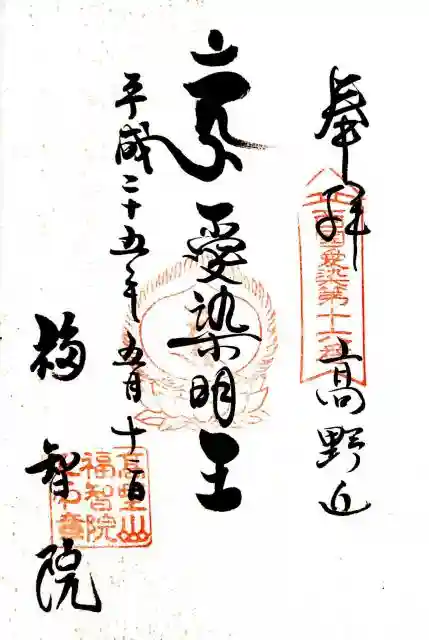 奉拝 高野山
西国愛染第十六番
愛染明王
平成二十五年五月十三日
福智院
高野山
福智院